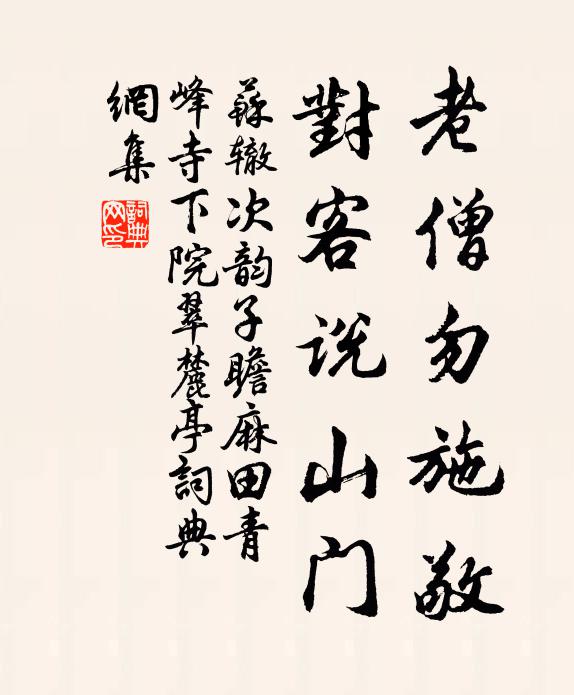 老僧勿施敬
對客说山门
蘇辙次韵子瞻麻田青
峰寺下院翠麓亭詞典
網集
詞典
网印